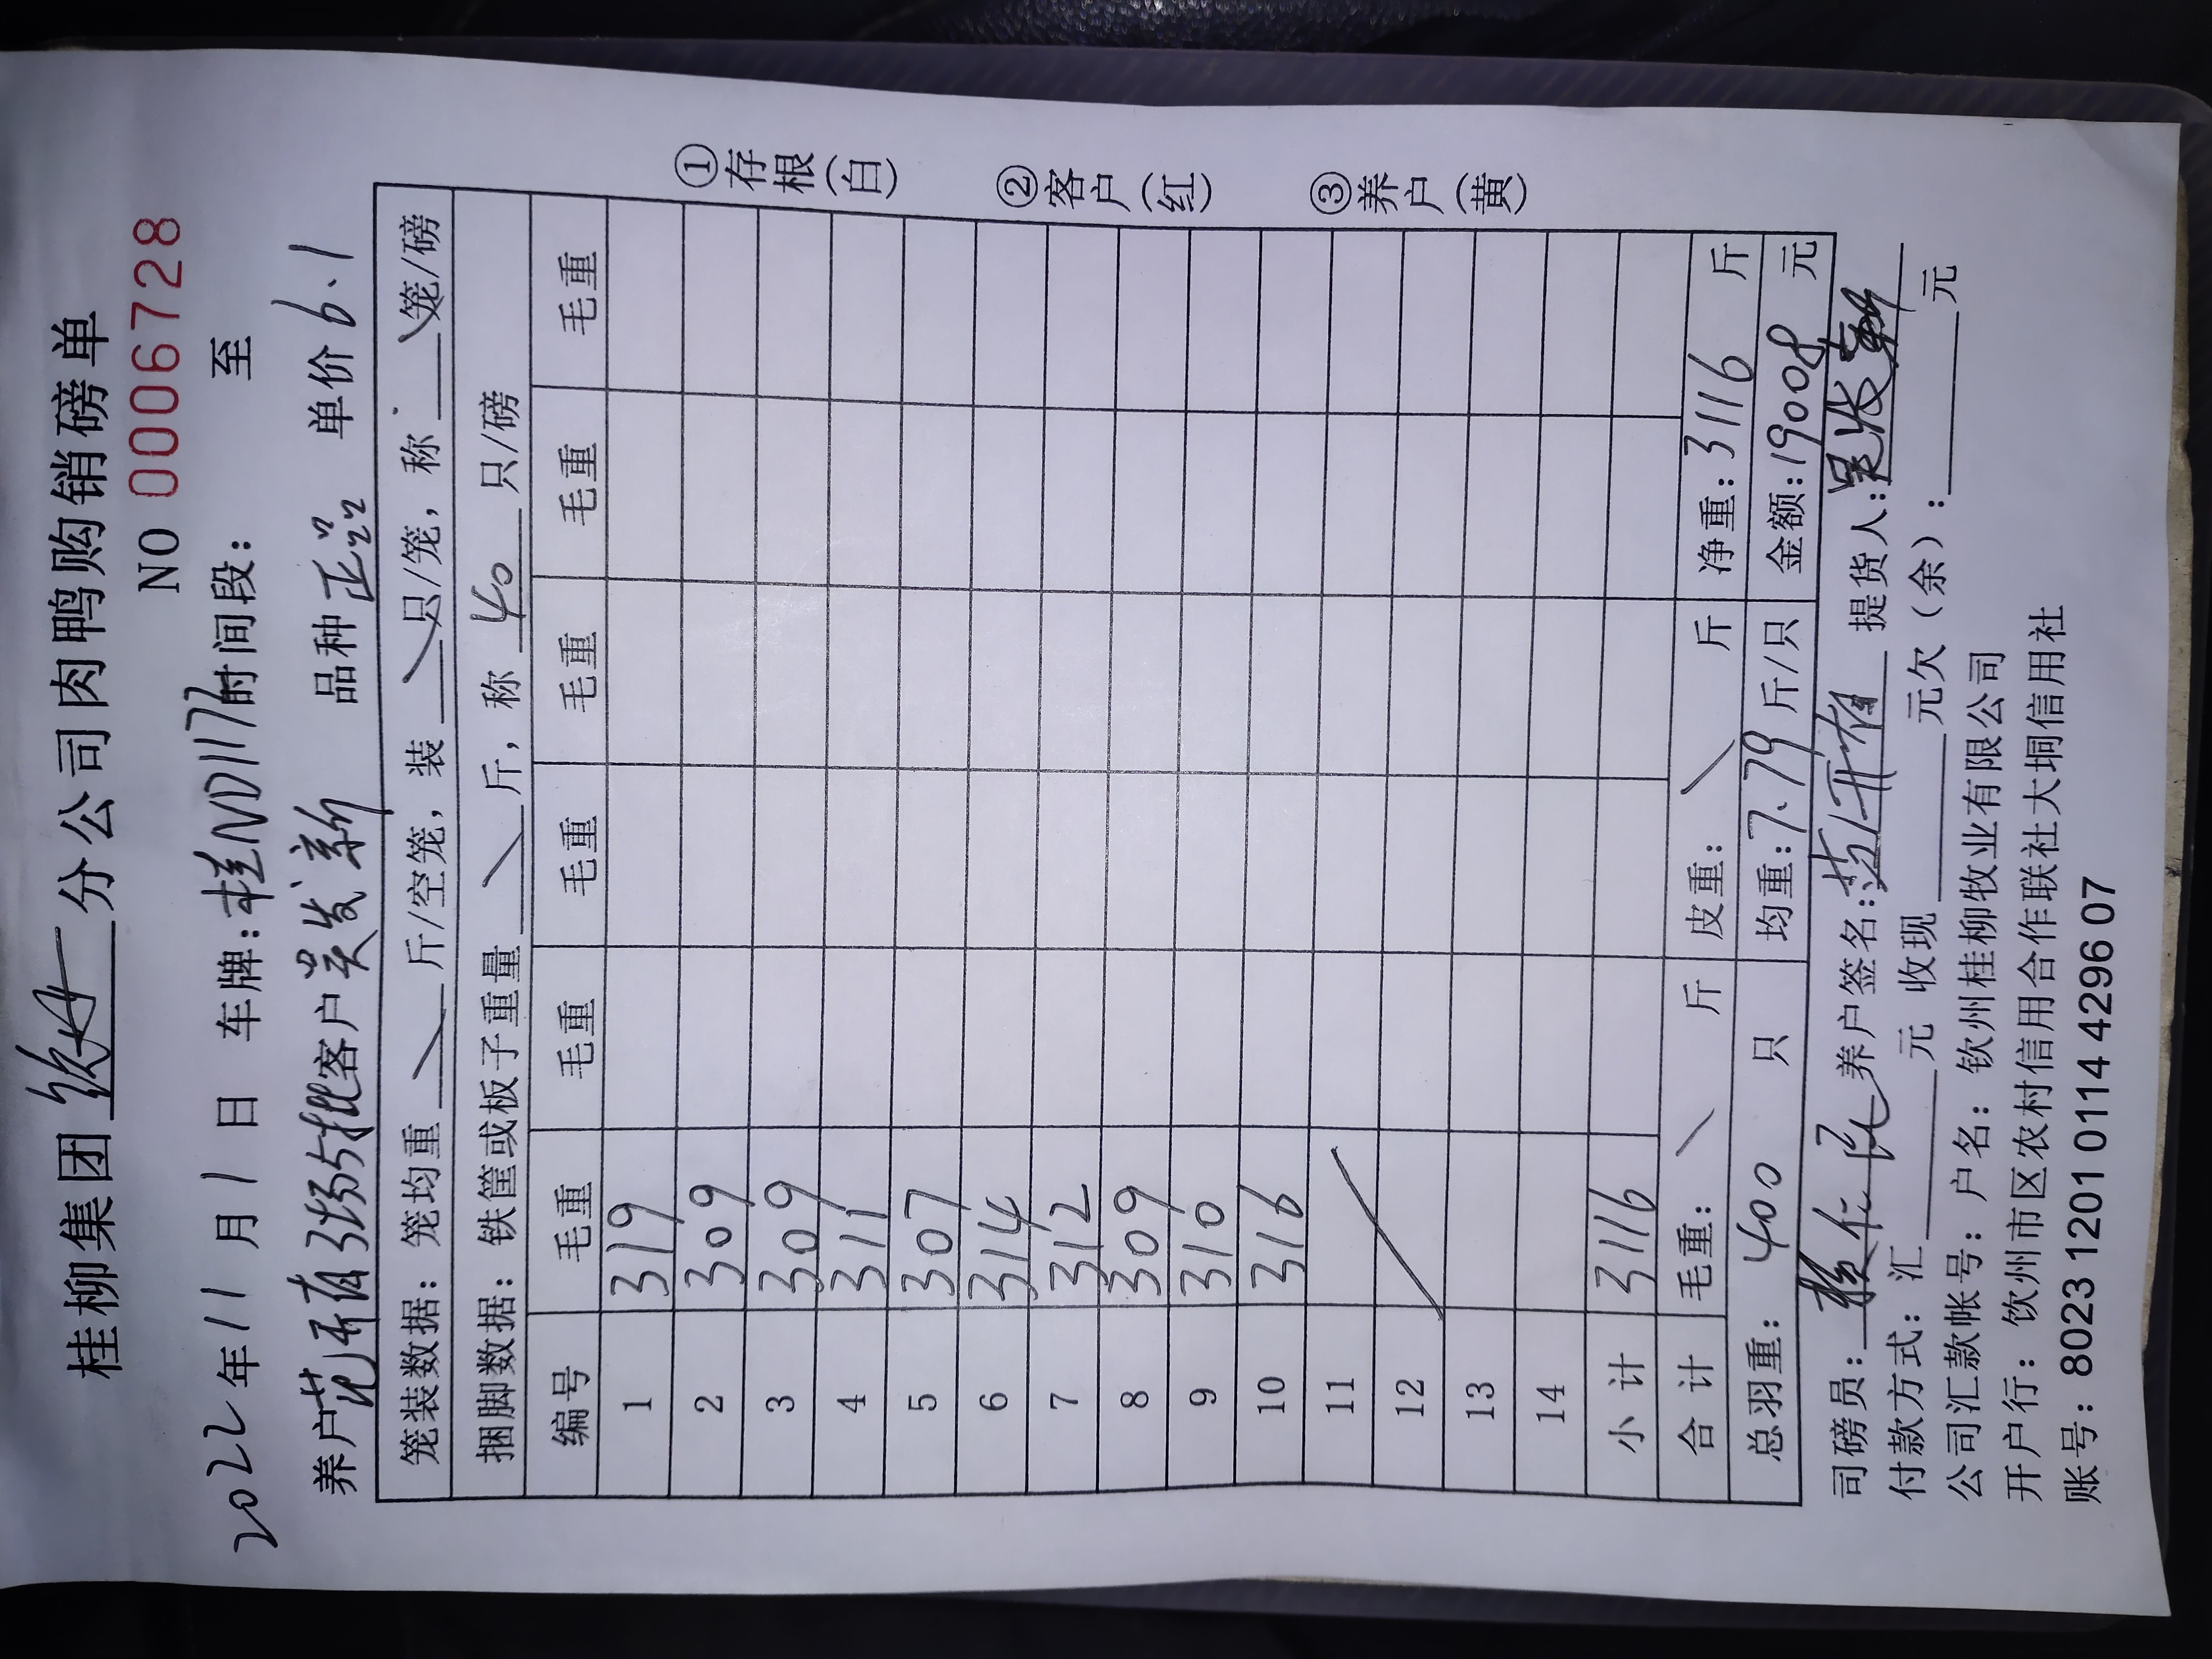 桂柳集团 分公司肉鸭购销磅单
NO 0006728
2022年11月1日 车牌:桂ND1177时间段: 至
养户范开有3场5批客户吴发新 品种正品 单价6.1
笼装数据: 笼均重 斤/空笼, 装 只/笼, 称 笼/磅
捆脚数据: 铁筐或板子重量 斤, 称 40 只/磅
编号 毛重 毛重 毛重 毛重 毛重 毛重
1 319
2 309
3 309
4 311
5 307
6 314
7 312
8 309
9 310
10 316
11
12
13
14
小计 3116
合计 毛重: 斤 皮重: 斤 净重: 3116 斤
总羽重: 400 只 均重: 7.79 斤/只 金额: 19008 元
司磅员: 养户签名: 范开有 提货人: 吴发新
付款方式: 汇 元 收现 元欠(余): 元
公司汇款帐号: 户名: 钦州桂柳牧业有限公司
开户行: 钦州市区农村信用合作联社大垌信用社
账号: 8023 1201 0114 4296 07
①存根(白)
②客户(红)
③养户(黄)